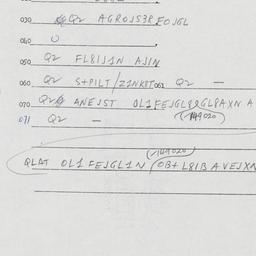 030 Q2 AGROJS3R EOJGL
040
050 Q2 FL8IJ1N AJIN
060 Q2 S+PILT/Z1NKRT061 Q2 —
070 Q2 ANEJST OL1FEJGL8QGL8AXN A
(149020)
071 Q2 —
(149020)
QLAT OL1FEJGL1N (OB+L8IB A VEJXN